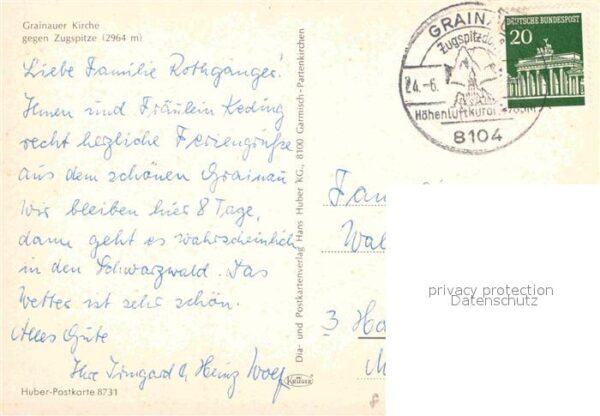 Grainauer Kirche
gegen Zugspitze (2964 m)
Liebe Familie Rothgänger!
Ihnen und Fräulein Keding
recht herzliche Feriengrüße
aus dem schönen Grainau
Wir bleiben hier 8 Tage,
dann geht es wahrscheinlich
in den Schwarzwald. Das
Wetter ist sehr schön.
Alles Gute
Ihre Irmgard & Heinz Wolf
Huber-Postkarte 8731
Dia- und Postkartenverlag Hans Huber KG., 8100 Garmisch-Partenkirchen
GRAINAU
Zugspitzdorf
24.-6.
Höhenluftkurort
8104
DEUTSCHE BUNDESPOST
20
Fam
Wal
3 Ha
privacy protection
Datenschutz